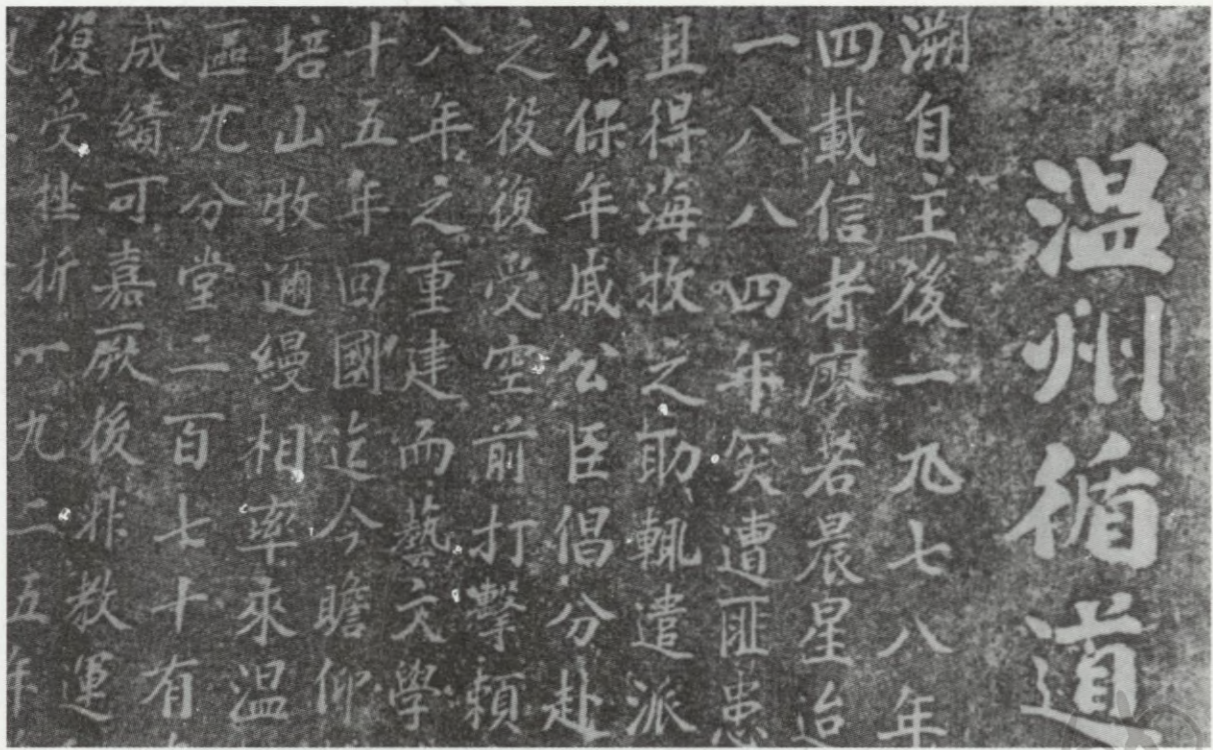 温州循道
溯自主後一九七八年
四載信者廖若晨星迨
一八八四年突遭匪患
且得海牧之助輒遣派
公保年戚公臣倡分赴
之役復受空前打擊賴
八年之重建而藝文學
十五年回國迄今瞻仰
培山牧邇縵相率來温
區九分堂二百七十有
成績可嘉厥後非教運
復受挫折一九二五年